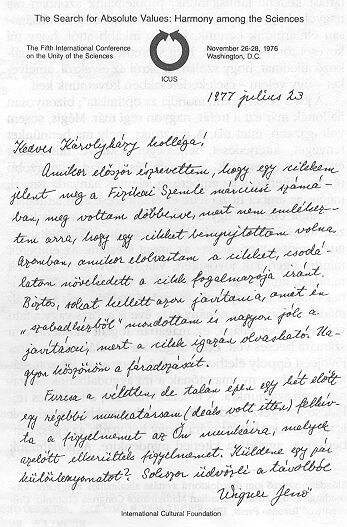 The Search for Absolute Values: Harmony among the Sciences
The Fifth International Conference
on the Unity of the Sciences
November 26-28, 1976
Washington, D.C.
ICUS
1977 július 23
Kedves Károlyházy kolléga!
Amikor először észrevettem, hogy egy cikkem
jelent meg a Fizikai Szemle márciusi számá-
ban, meg voltam döbbenve, mert nem emlékez-
tem arra, hogy egy cikket benyujtottam volna
Azonban, amikor elolvastam a cikket, csodá-
latom növekedett a cikk fogalmazója iránt.
Biztos, sokat kellett azon javítania, amit én
„szabadkézből" mondottam és nagyon jók a
javításai, mert a cikk igazán olvasható. Na-
gyon köszönöm a fáradozását.
Furcsa a véletlen, de talán épen egy hét előtt
egy régebbi munkatársam (deáks volt itten) felhív-
ta a figyelmemet az Ön munkáira, melyek
azelőtt elkerülték figyelmemet. Küldene egy pár
különlenyomatot? Sokszor üdvözli a távolból
Wigner Jenő
International Cultural Foundation